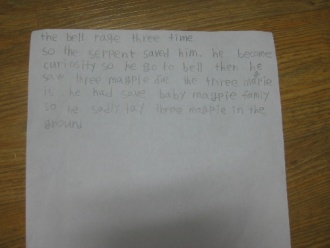 the bell rage three time
so the serpent saved him. he become
curiosity so he go to bell then he
saw three magpie die the three magpie
is he had save baby magpie family
so he sadly three magpie in the
ground